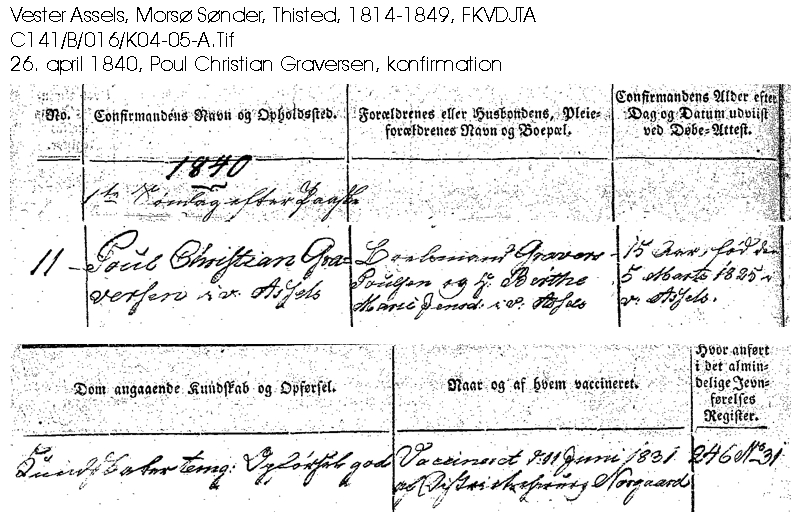 Vester Assels, Morsø Sønder, Thisted, 1814-1849, FKVDJTA
C141/B/016/K04-05-A.Tif
26. april 1840, Poul Christian Graversen, konfirmation
No. Confirmandens Navn og Opholdssted. Forældrenes eller Husbondens, Pleie-forældrenes Navn og Boepæl. Confirmandens Alder efter Dag og Datum udviist ved Døbe-Attest.
1840
1te Søndag efter Paaske
11 Poul Christian Gra- Boelsmand Gravers 15 Aar, fød den
versen i v. Assels Poulsen og H. Birthe 5 Marts 1825 i
Marie Jensd. i v. Assels v. Assels.
Dom angaaende Kundskab og Opførsel. Naar og af hvem vaccineret. Hvor anført i det almin-delige Jevn-førelses Register.
Kundskaber temg: Opførsel god Vaccineret d. 11 Juni 1831 246 No 31
af Districtschirurg Norgaard